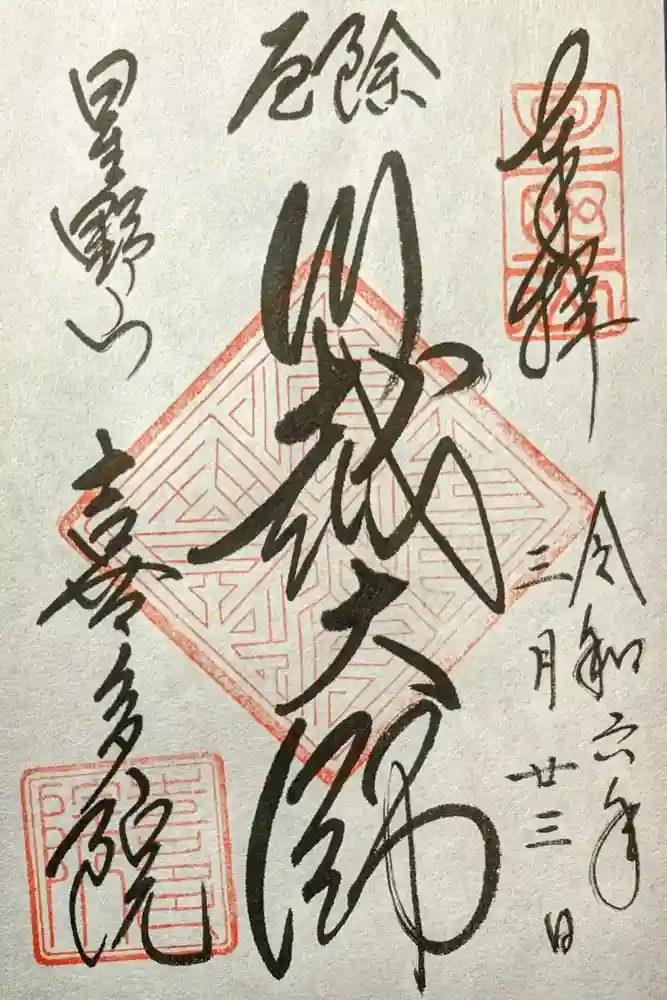 奉拝
令和六年
三月廿三日
除厄
川越大師
星野山
喜多院